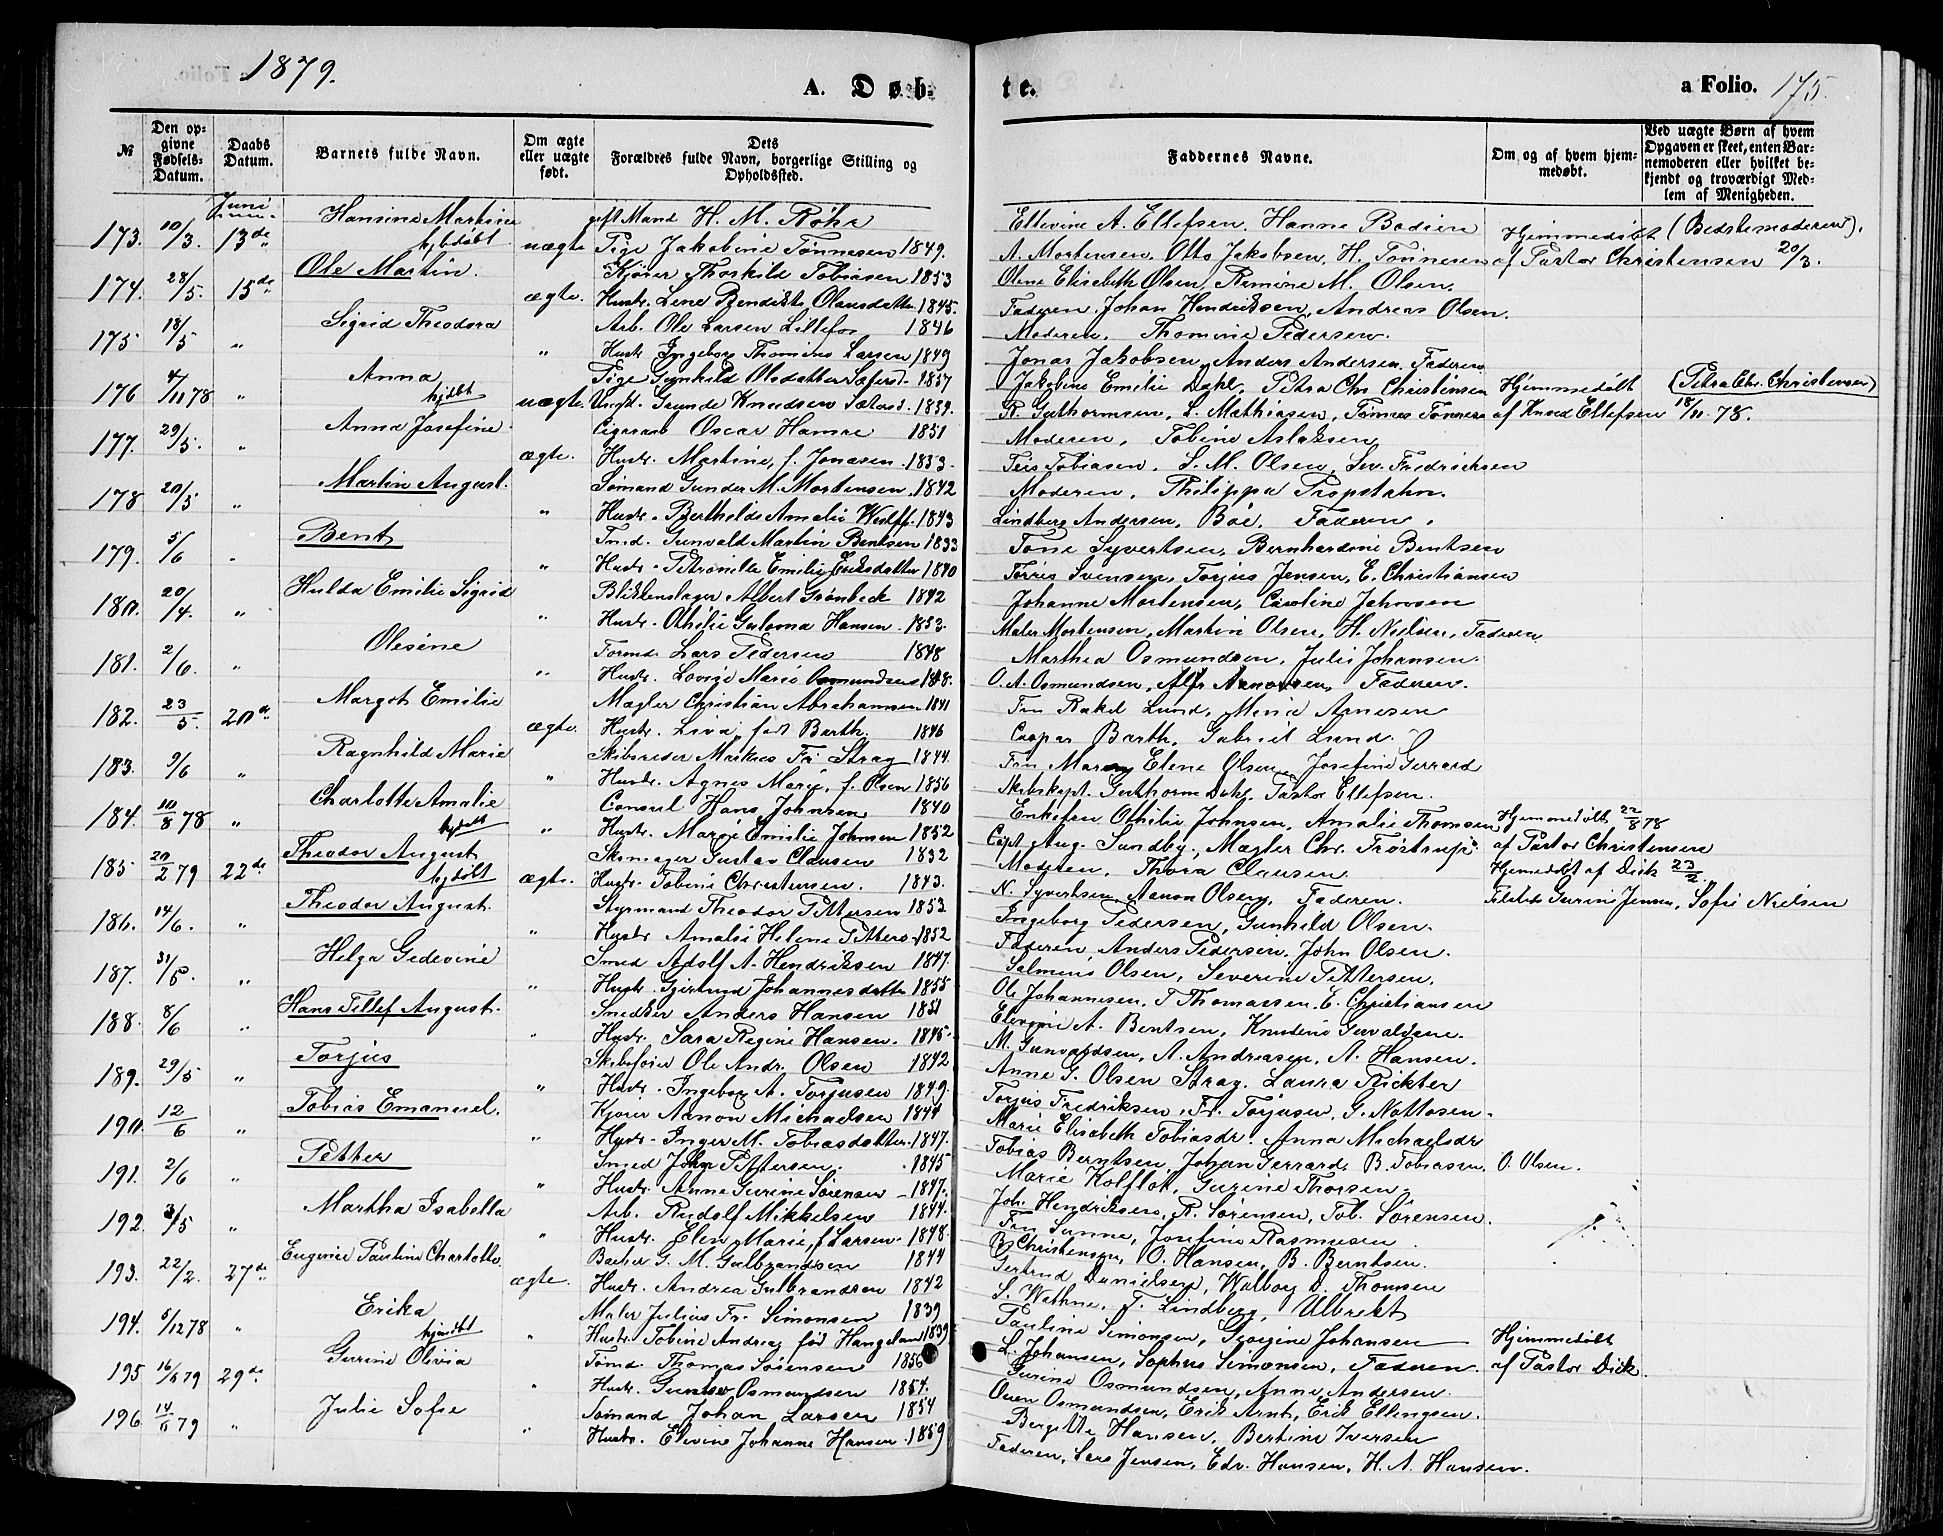 1879.
A. Døb-
te.
a Folio. 175.
№
Den op-
givne
Fødsels-
Datum.
Daabs
Datum.
Barnets fulde Navn.
Om ægte
eller uægte
født.
Dets
Forældres fulde Navn, borgerlige Stilling og
Opholdssted.
Faddernes Navne.
Om og af hvem hjem-
medøbt.
Ved uægte Børn af hvem
Opgaven er skeet, enten Bar-
nemoderen eller hvilket be-
kjendt og troværdigt Med-
lem af Menigheden.
Juni
173. 10/3. 13de Hansine Martine hjdøbt uægte gift Mand H. M. Røhr
Pige Jakobine Tønnesen 1849.
Ellevine A. Ellefsen, Hanne Bodien
A. Mortensen, Otto Jakobsen, H. Tønnesen
Hjemmedøbt (Bedstemoderen).
af Pastor Christensen 20/3.
174. 28/5. 15de Ole Martin. ægte. Kjører Thorkild Tobiasen 1853
Hustr. Lene Bendikte Olausdatter 1845.
Olene Elisabeth Olsen, Remine M. Olsen.
Faderen, Johan Hendriksen, Andreas Olsen.
175 18/5 " Sigrid Theodora " Arb. Ole Larsen Lillefos 1846
Hustr. Ingeborg Thomine Larsen 1849
Moderen, Thomine Pedersen.
Jonas Jakobsen, Anders Andersen, Faderen
176 4/11 78 " Anna hjdøbt uægte. Pige Gunhild Olsdatter Sæterst. 1857
Ungk. Gunde Knudsen Sæterst. 1839.
Jakobine Emilie Dahl, Petra Chr. Christensen
R. Guthormsen, L. Mathiasen, Tønnes Tønnesen
Hjemmedøbt (Petra Chr. Christensen)
af Knud Ellefsen 18/11 78.
177. 29/5. " Anna Josefine ægte. Cigararb Oscar Hamre 1851
Hustr. Martine, f. Jonasen 1853.
Moderen, Tobine Aslaksen
Teis Tobiasen, S. M. Olsen, Sev. Fredriksen
178 20/5 " Martin August. " Sømand Gunder M. Mortensen 1842
Hustr. Berthilde Amalie 1843
Moderen, Philippa Propstahn.
Lindberg Andersen, Bøe, Faderen.
179. 5/6 " Bent " Tmd. Gunvald Martin Bentsen 1833
Hustr. Petronille Emilie Eriksdatter 1840
Tone Syvertsen, Bernhardine Bentsen
Torris Svensen, Torjus Jensen, E. Christiansen
180. 20/4. " Hulda Emilie Sigrid " Blikkenslager Albert Grønbeck 1842
Hustr. Othilie Galoma Hansen 1853.
Johanne Mortensen, Caroline Jahnsen
Maler Mortensen, Martin Olsen, H. Nielsen, Faderen
181. 2/6. " Olesine " Tømmd. Lars Pedersen 1848
Hustr. Lovise Marie Osmundsen 1848.
Marthea Osmundsen, Julie Johansen.
O. A. Osmundsen, Alfr Aanonsen, Faderen.
182. 23/5. 20de Margot Emilie ægte. Mægler Christian Abrahamsen 1841
Hustr. Liva, født Barth. 1846
Fru Rakel Lund, Mena Arnesen
Caspar Barth, Gabriel Lund.
183. 9/6 " Ragnhild Marie " Skibsreder Markus Fr Stray 1844.
Hustr. Agnes Marie, f. Olsen 1856
Fru Maren Elene Olsen, Josefine Gerrard
Skibskapt. Guthorm Dahl, Pastor Ellefsen.
184. 10/8 78 " Charlotte Amalie hjdøbt " Consul Hans Johnsen 1840
Hustr. Marie Emilie Johnsen 1852
Enkefru Othilie Johnsen, Amalie Thomsen
Capt Aug. Sundby, Mægler Chr. Frøstrup.
Hjemmedøbt 22/8 78
af Pastor Christensen
185 20/2 79 22de Theodor August hjdøbt ægte. Skomager Gustav Clausen 1832
Hustr. Tobine Christensen. 1843.
Moderen, Thora Clausen
N. Syvertsen, Aanon Olsen, Faderen.
Hjemedøbt af Dick 23/2.
Gurine Jensen, Sofie Nielsen
186. 14/6. " Theodor August. " Styrmand Theodor Pettersen 1853
Hustr. Amalie Helene Petters. 1852
Ingeborg Pedersen, Gunhild Olsen.
Faderen, Anders Pedersen, John Olsen.
187. 31/5. " Helga Gedevine " Smed Adolf A. Hendriksen 1847.
Hustr. Gjertrud Johannesdatter 1855
Salmine Olsen, Severine Pettersen.
Ole Johannesen, T Thomassen, E. Christiansen
188. 8/6 " Hans Tellef August. " Snedker Anders Hansen 1851
Hustr. Sara Regine Hansen. 1845
Elevine A. Bentsen, Knudine Gunvaldsen.
M. Gunvaldsen, A. Andreasen, A. Hansen.
189. 29/5 " Torjus " Skibsfører Ole Andr. Olsen 1842
Hustr. Ingeborg A. Torjusen 1849.
Anne G. Olsen Stray, Laura Rickter
Torjus Fredriksen, Fr. Torjusen, G. Nottosen.
190. 12/6 " Tobias Emanuel. " Kjører Aanon Michaelsen 1844
Hustr. Inger M. Tobiasdatter 1847.
Marie Elisabeth Tobiasdr. Anna Michaelsdr
Tobias Berntsen, Johan Gerrard, B. Tobiasen, O. Olsen.
191. 2/6 " Petter " Smed John Pettersen. 1845
Hustr. Anne Gurine Sørensen 1847.
Marie Kolflot, Gurine Thorsen
Joh. Hendriksen, R. Sørensen, Tob. Sørensen.
192. 3/5 " Martha Isabella " Arb. Rudolf Mikkelsen 1844.
Hustr. Elen Marie, f Larsen. 1848.
Fru Sunne, Josefine Rasmussen
B. Christensen, O. Hansen, B. Berntsen.
193. 22/2. 27de Eugenie Pauline Charlotte ægte. Barber G. M. Gulbrandsen 1844
Hustr. Andrea Gulbrandsen 1842
Gertrud Danielsen, Walborg D. Thomsen
S. Wathne, T. Lindberg, Ulbrekt
194. 5/12 78 " Erika hjmdøbt " Maler Julius Fr. Simonsen 1839
Hustr. Tobine Andrea født 1839
Pauline Simonsen, Georgine Johansen
L. Johansen, Sophus Simonsen, Faderen.
Hjemmedøbt
af Pastor Dick
195 16/5 79 29de. Gurine Olivia " Tømd. Thomas Sørensen 1856
Hustr. Osmundsen 1854.
Gurine Osmundsen, Anne Andersen.
Oven Osmundsen, Erik Arnt, Erik Ellingsen.
196. 14/5 79 " Julie Sofie " Sømand Johan Larsen 1854
Hustr. Elevine Johanne Hansen 1859
Bergitte Hansen, Bertine Iversen
Faderen, Lars Jensen, Edv. Hansen, H. A. Hansen.